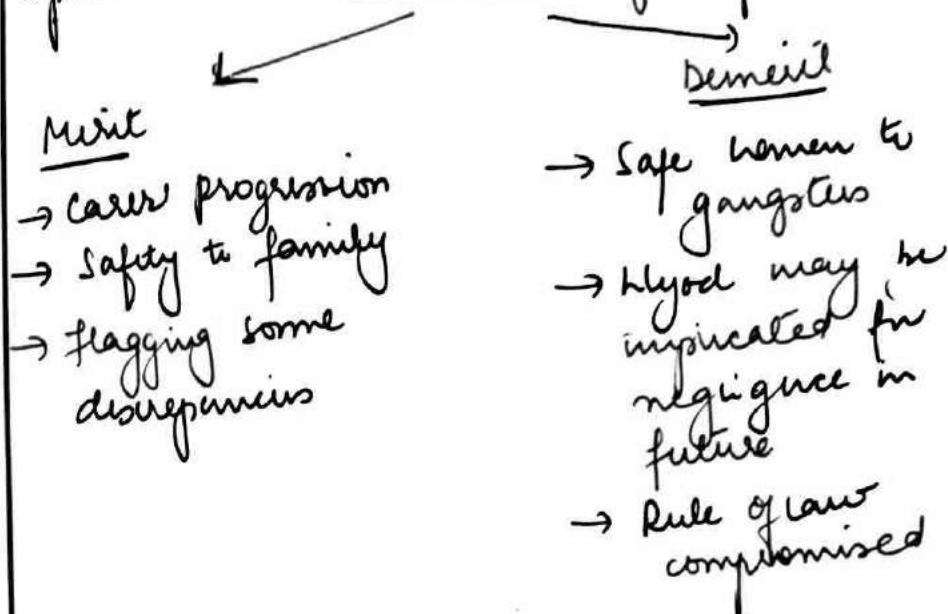 Merit
→ Career progression
→ Safety to family
→ Flagging some
discrepancies
Demerit
→ Safe haven to
gangsters
→ Llyod may be
implicated for
negligence in
future
→ Rule of law
compromised